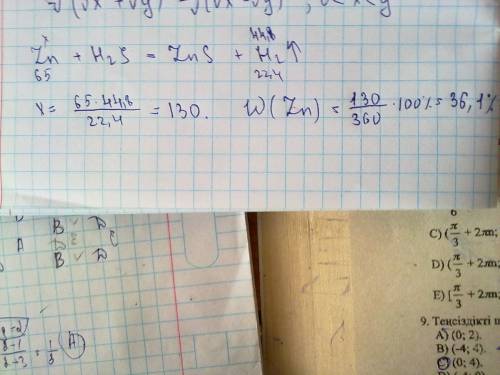 √(√x + √y) - √(√x - √y) ; 0 < x < y
x 44,8
Zn + H2S = ZnS + H2↑
65 22,4
x = 65·44,8 / 22,4 = 130. W(Zn) = 130/360 · 100% = 36,1%
B ✓ D
A D E C
B ✓ D
8+1
= 1/3 (A)
6
C) (π/3 + 2πn;
D) (π/3 + 2πn;
E) [π/3 + 2πn;
9. Теңсіздікті ш
A) (0; 2).
B) (-4; 4).
C) (0; 4).